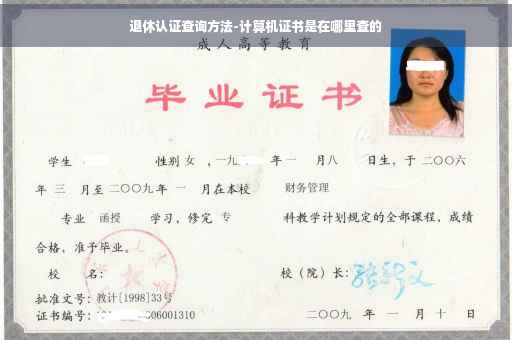 退休认证查询方法-计算机证书是在哪里查的
成人高等教育
毕业证书
学生 性别 女 ，一九 年一 月八 日生，于二〇〇六
年 三 月至二〇〇九年 一 月在本校 财务管理
专业 函授 学习，修完 专 科教学计划规定的全部课程，成绩
合格，准予毕业。
校 名： 校（院）长：
批准文号：教计[1998]33号
证书编号： 06001310 二〇〇九 年 一 月 十 日